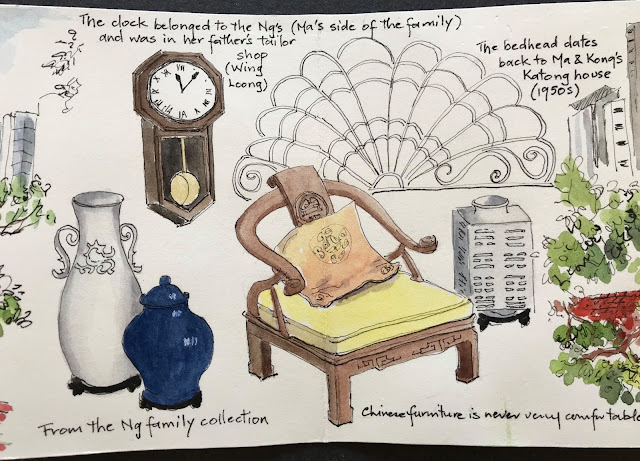 The clock belonged to the Ng's (Ma's side of the family)
and was in her father's tailor
shop
(Wing
Loong)
The bedhead dates
back to Ma & Kong's
Katong house
(1950s)
From the Ng family collection
Chinese furniture is never very comfortable